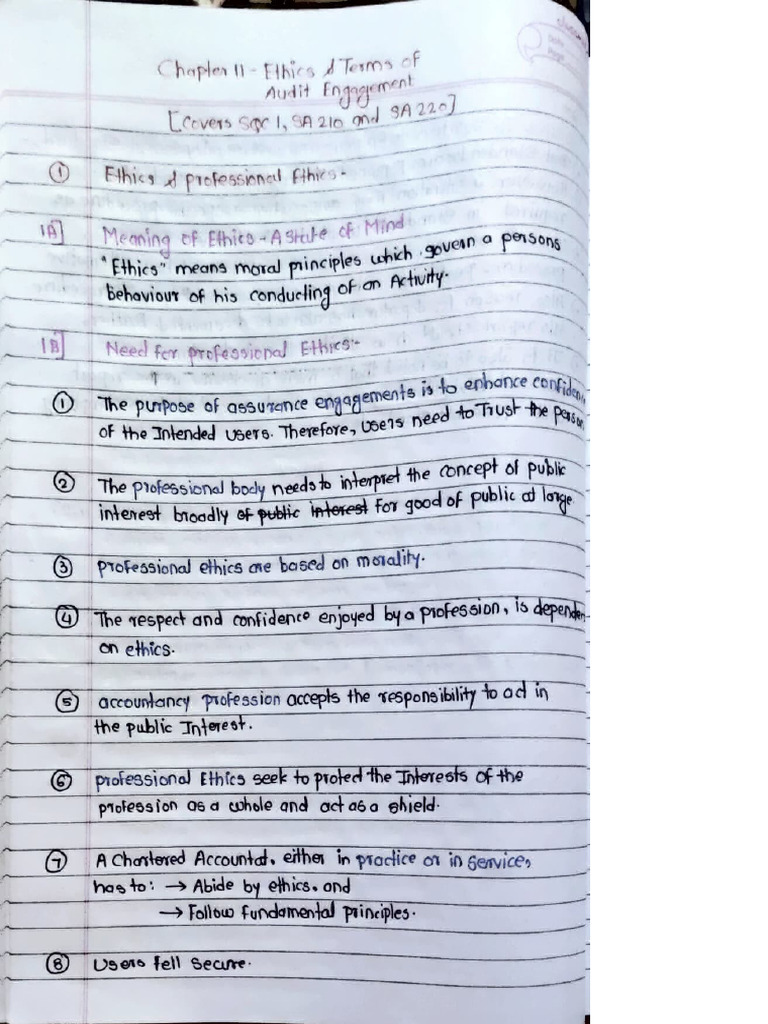 Chapter 11 - Ethics & Terms of
Audit Engagement
[Covers SQC 1, SA 210 and SA 220]
① Ethics & professional Ethics -
1A] Meaning of Ethics - A State of Mind
"Ethics" means moral principles which govern a persons
behaviour of his conducting of an Activity.
1B] Need for professional Ethics:-
① The purpose of assurance engagements is to enhance confidenc
of the Intended users. Therefore, users need to Trust the person
② The professional body needs to interpret the concept of public
interest broadly of public interest for good of public at large
③ professional ethics are based on morality.
④ The respect and confidence enjoyed by a profession, is dependen
on ethics.
⑤ accountancy profession accepts the responsibility to act in
the public Interest.
⑥ professional Ethics seek to protect the Interests of the
profession as a whole and act as a shield.
⑦ A Chartered Accountat, either in practice or in service,
has to: → Abide by ethics, and
→ Follow fundamental principles.
⑧ Users fell secure.